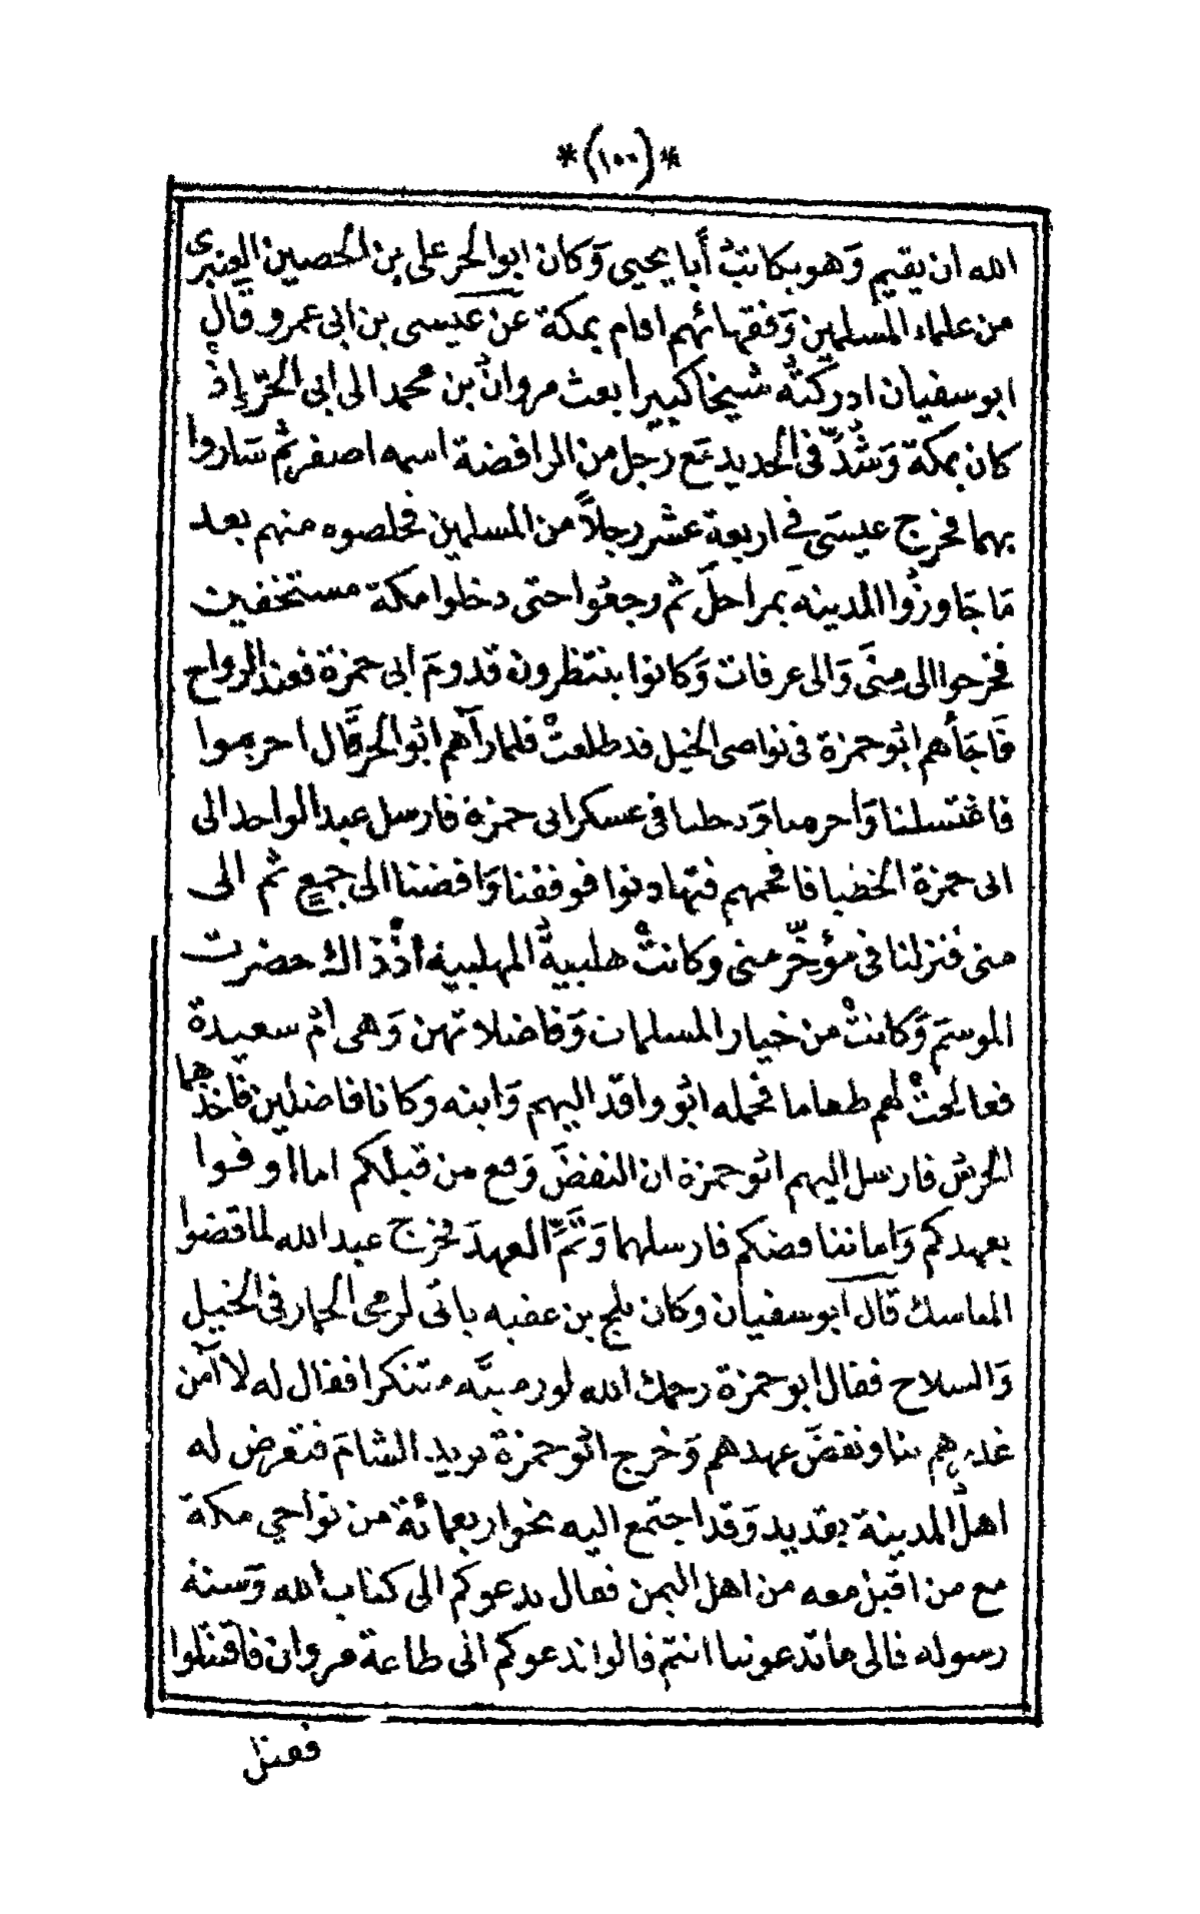 *(١٠٠)*
الله ان يقيم وَهو يكاتبُ أَبا يحيى وَكان ابو الحر على بن الحصين العنبرى
من علماء المسلمين وَفقهائهم اقام بمكة عن عيسى بن ابى عمرو قَال
ابو سفيان ادركتُه شيخا كبيرا بعث مروانُ بن محمد الى ابى الحرّ إِذْ
كان بمكة وَشُدَّ فى الحديد مَع رَجل من الرافضة اسمه اصفر ثُم سَاروا
بهما فخرج عيسَى في اربعة عشر رجلاً من المسلمين فخلصوه منهم بعد
مَا جَاوزُوا المدينه بمراحلَ ثم رجعُوا حتى دخلوا مكة مستخفين
فخرجوا الى مِنَى وَالى عرفات وَكانوا ينتظرون قدومَ ابى حمزة فعند الرواح
فَاجَأهم ابُو حمزة فى نواصى الخيل قد طلعتْ فلما رآهم ابُو الحر قَال احرموا
فاغتسلنا وَاحرمنا وَدخلنا فى عسكر ابى حمزة فارسل عبد الواحد الى
ابى حمزة الخضبا فافحمهم فتهادنوا فوقفنا وَافضنا الى جمعٍ ثم الى
منى فنزلنا فى مؤخّر منى وكانتْ هلبيةُ المهلبية أذْذاك حضرت
الموسمَ وَكانتْ من خيار المسلمات وَفاضلاتهن وَهى امُ سعيدة
فعالجتْ لهم طعاما فحمله ابُو واقد اليهم وَابنه وكانا فاضلين فأخذهما
الحرسُ فارسل اليهم ابُو حمزة ان النقضَ وَقع من قبلكم اما اوفوا
بعهدكم وَاما نناقضكم فارسلهما وَتَمَّ العهدَ فخرج عبد الله لما قضوا
المناسك قَال ابو سفيان وكان بلج بن عقبه ياتى لرمى الجمار فى الخيل
وَالسلاح فقال ابو حمزة رحمك الله لو رميتَه متنكرا فقال له لا آمن
غدرهم بنا ونقضَ عهدهم وَخرج ابُو حمزة يريد الشامَ فتعرض له
اهلُ المدينة بقديد وَقد اجتمع اليه نحو اربعمائة من نواحي مكة
مع من اقبل معه من اهل اليمن فقال ندعوكم الى كتاب الله وَسنة
رسوله قالى ما تدعوننا انتم قالوا ندعوكم الى طاعة مروان فاقتتلوا
فقتل